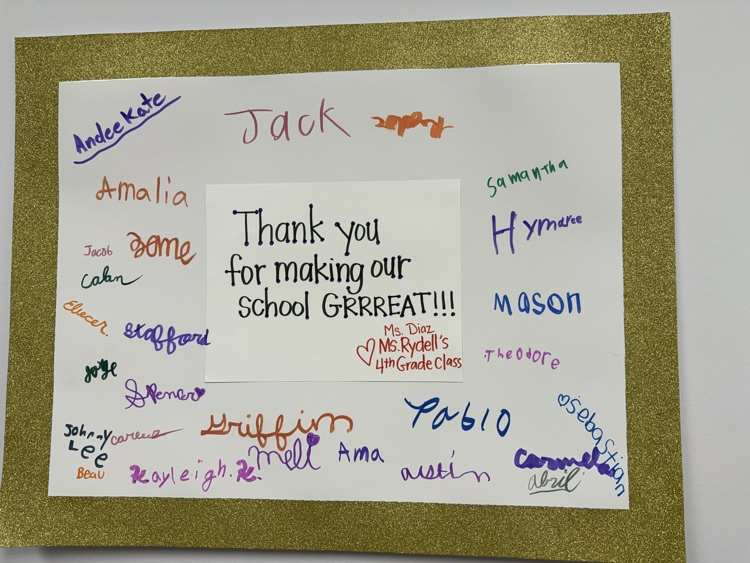 AndeeKate
Jack
Amalia
Samantha
Hymaree
Jacob
Calan
Thank you
for making our
school GRRREAT!!!
Ms. Diaz
♡ Ms. Rydell's
4th Grade Class
Mason
Eliecer.
Stafford
Theodore
Jorge
Spencer
Griffin
Pablo
♡Sebastian
Johnny
Lee
Beau
Kayleigh.H.
Meli
Ama
austin
Carmela
abril